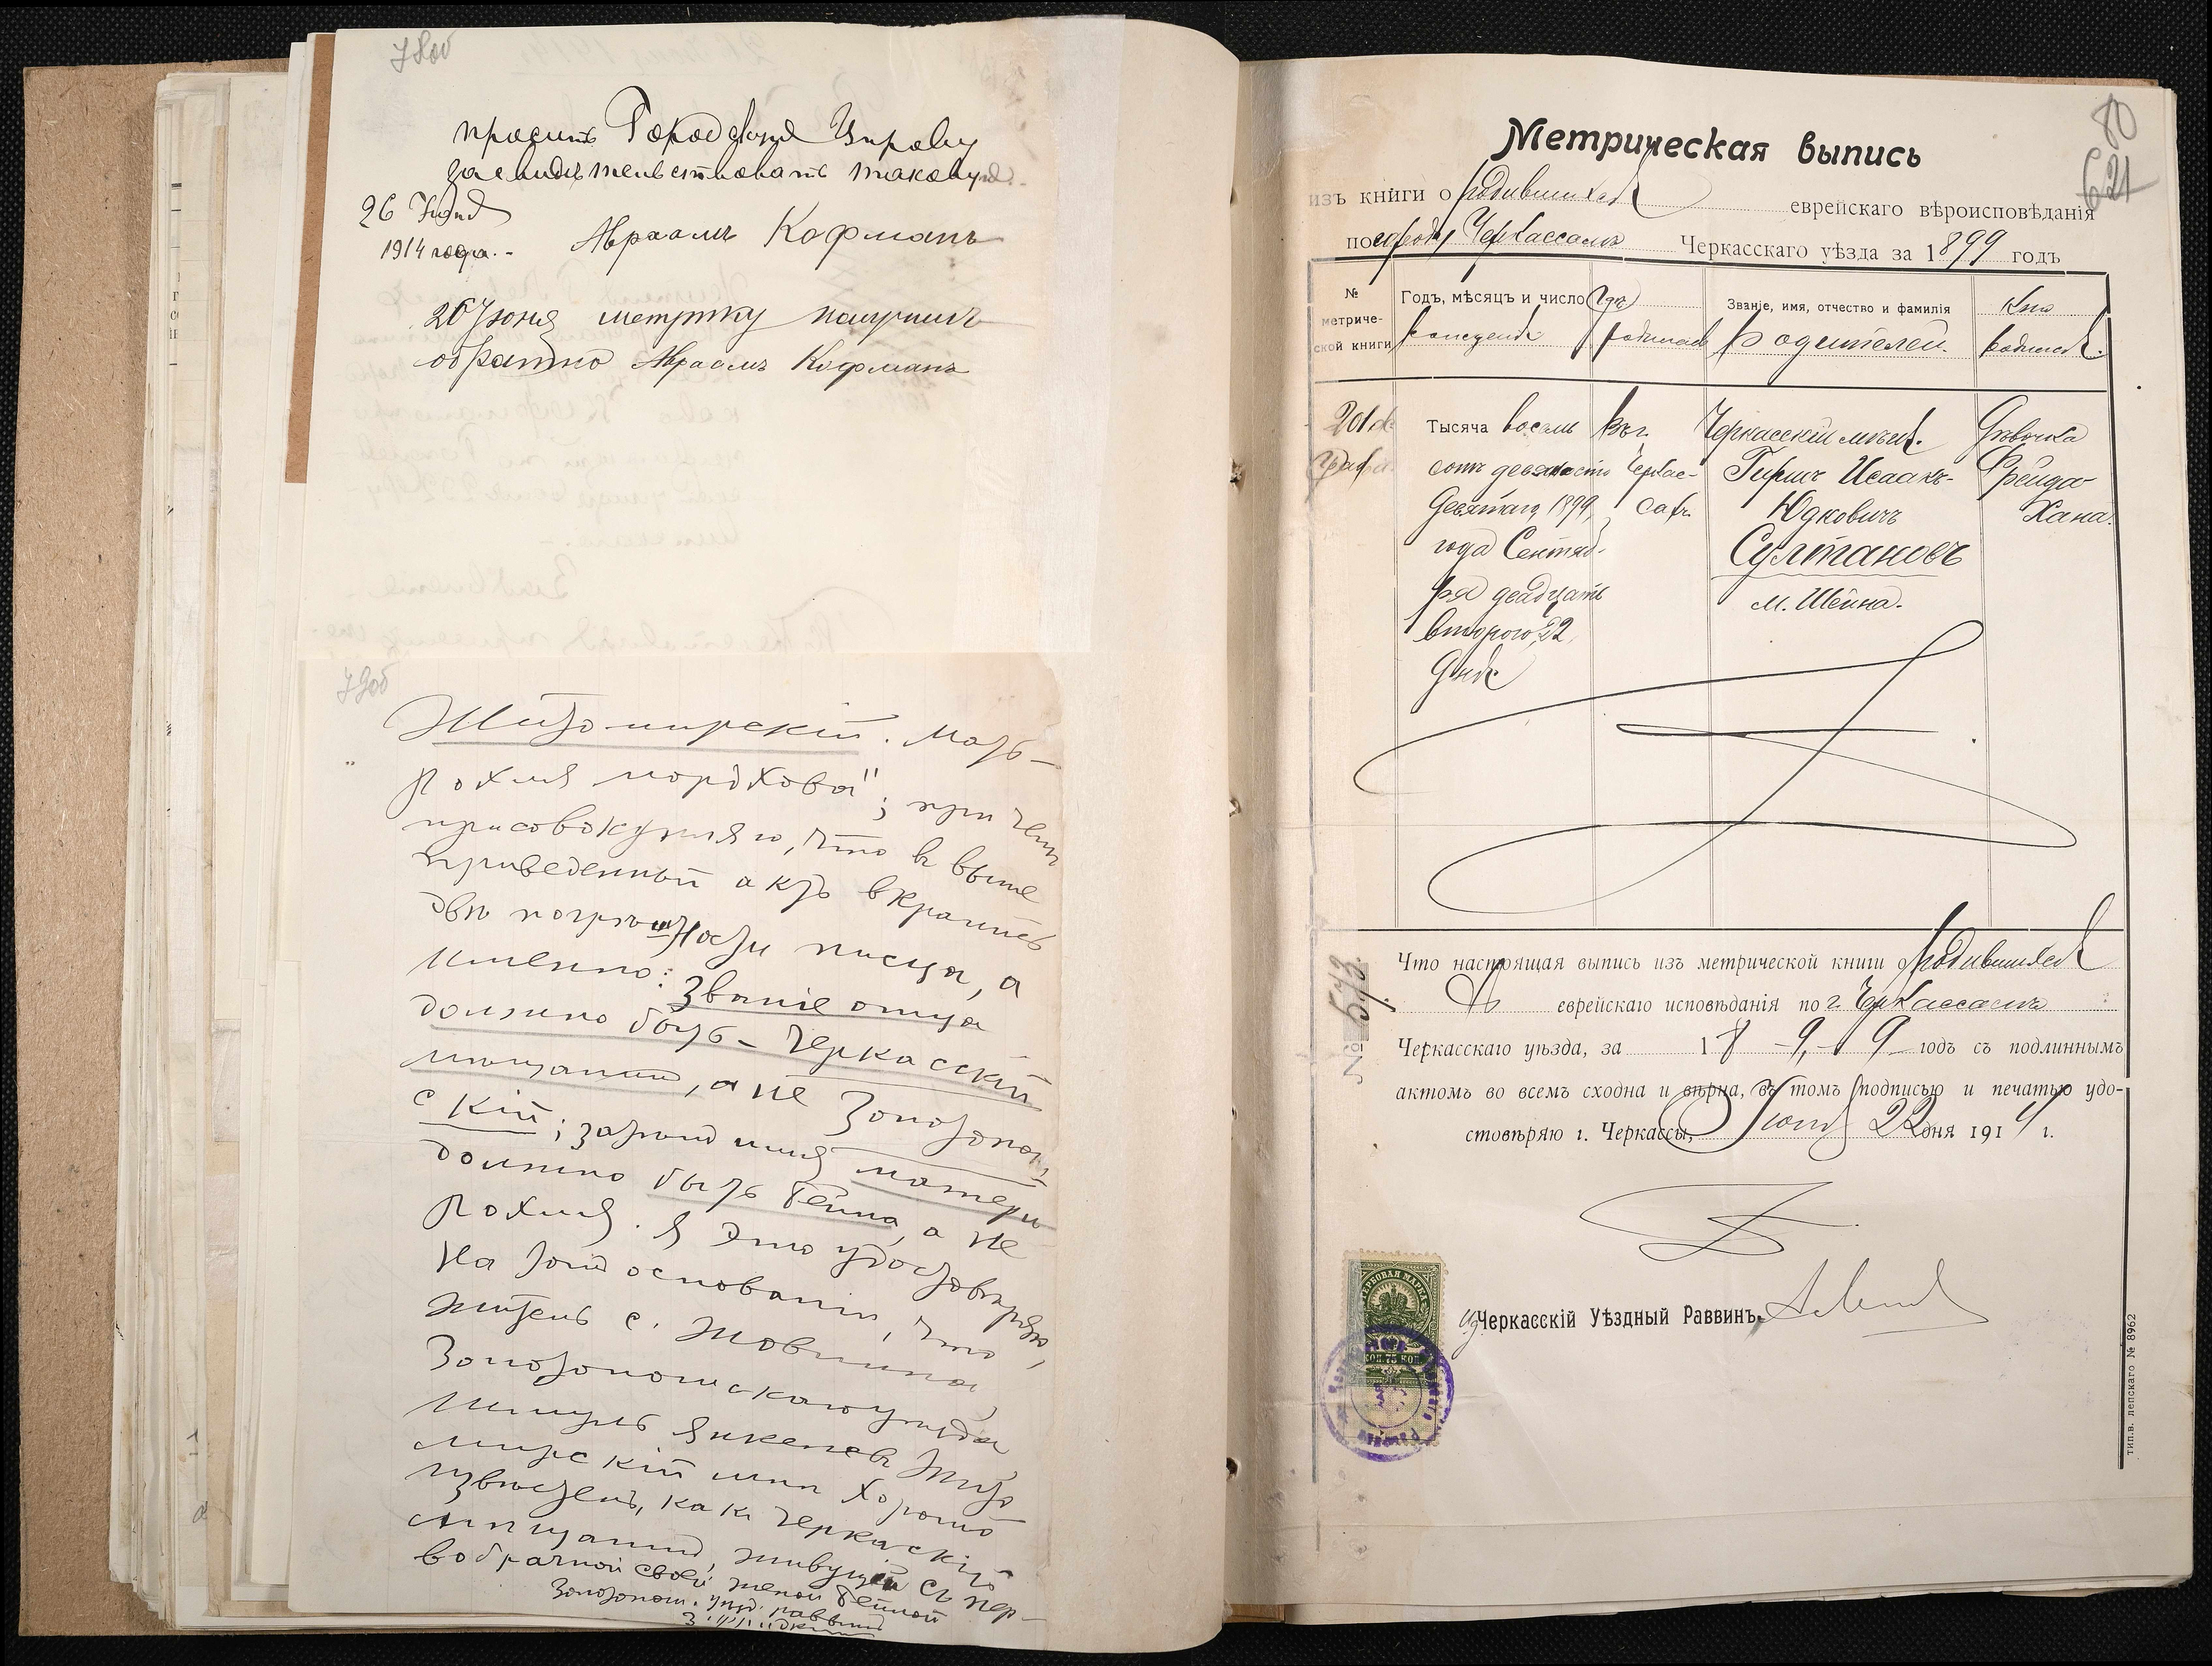 78об
просить Городскую Управу
засвидѣтельствовать таковую.
26 Іюня
1914 года.-
Авраамъ Кофманъ
26 Іюня метрику получилъ
обратно Авраамъ Кофманъ
79об
Житомирскій. Мать-
Рохля Мордкова"; при чемъ
присовокупляю, что въ выше
приведенный актъ вкрались
двѣ погрѣшности писца, а
именно: Званіе отца
должно быть - Черкасскій
мѣщанинъ, а не Золотонош-
скій; затѣмъ имя матери
должно быть Бейла, а не
Рохля. Я это удостовѣряю,
на томъ основаніи, что
житель с. Жовнина,
Золотоношскаго уѣзда,
Шмуль Янкелевъ Жито
мирскій мнѣ хорошо
извѣстенъ, какъ Черкаскій
мѣщанинъ, живущій съ пер-
вобрачной своей женой Бейлой
Золотонош. уѣзд. раввинъ
80
621
Метрическая выпись
изъ книги о родившихся еврейскаго вѣроисповѣданія
по городу Черкассамъ Черкасскаго уѣзда за 1899 годъ
№ метриче-ской книги
Годъ, мѣсяцъ и число рожденія
Гдѣ родился
Званіе, имя, отчество и фамилія родителей.
Кто родился.
201
Тысяча восемь
сотъ девяносто
девятаго 1899
года Сентяб-
ря двадцать
второго 22
дня
Въ г.
Черкас-
сахъ
Черкасскій мѣщ.
Гиршъ Исаакъ-
Юдковичъ
Султановъ
м. Шейна.
Дѣвочка
Фрейда
Хана.
№ 573.
Что настоящая выпись изъ метрической книги о родившихся
еврейскаго исповѣданія по г. Черкассамъ
Черкасскаго уѣзда, за 1899 годъ съ подлиннымъ
актомъ во всемъ сходна и вѣрна, въ томъ подписью и печатью удо-
стовѣряю г. Черкассы, Іюня 22 дня 1914 г.
ГЕРБОВАЯ МАРКА
75 КОП
Черкасскій Уѣздный Раввинъ
тип. в. лепскаго № 8962